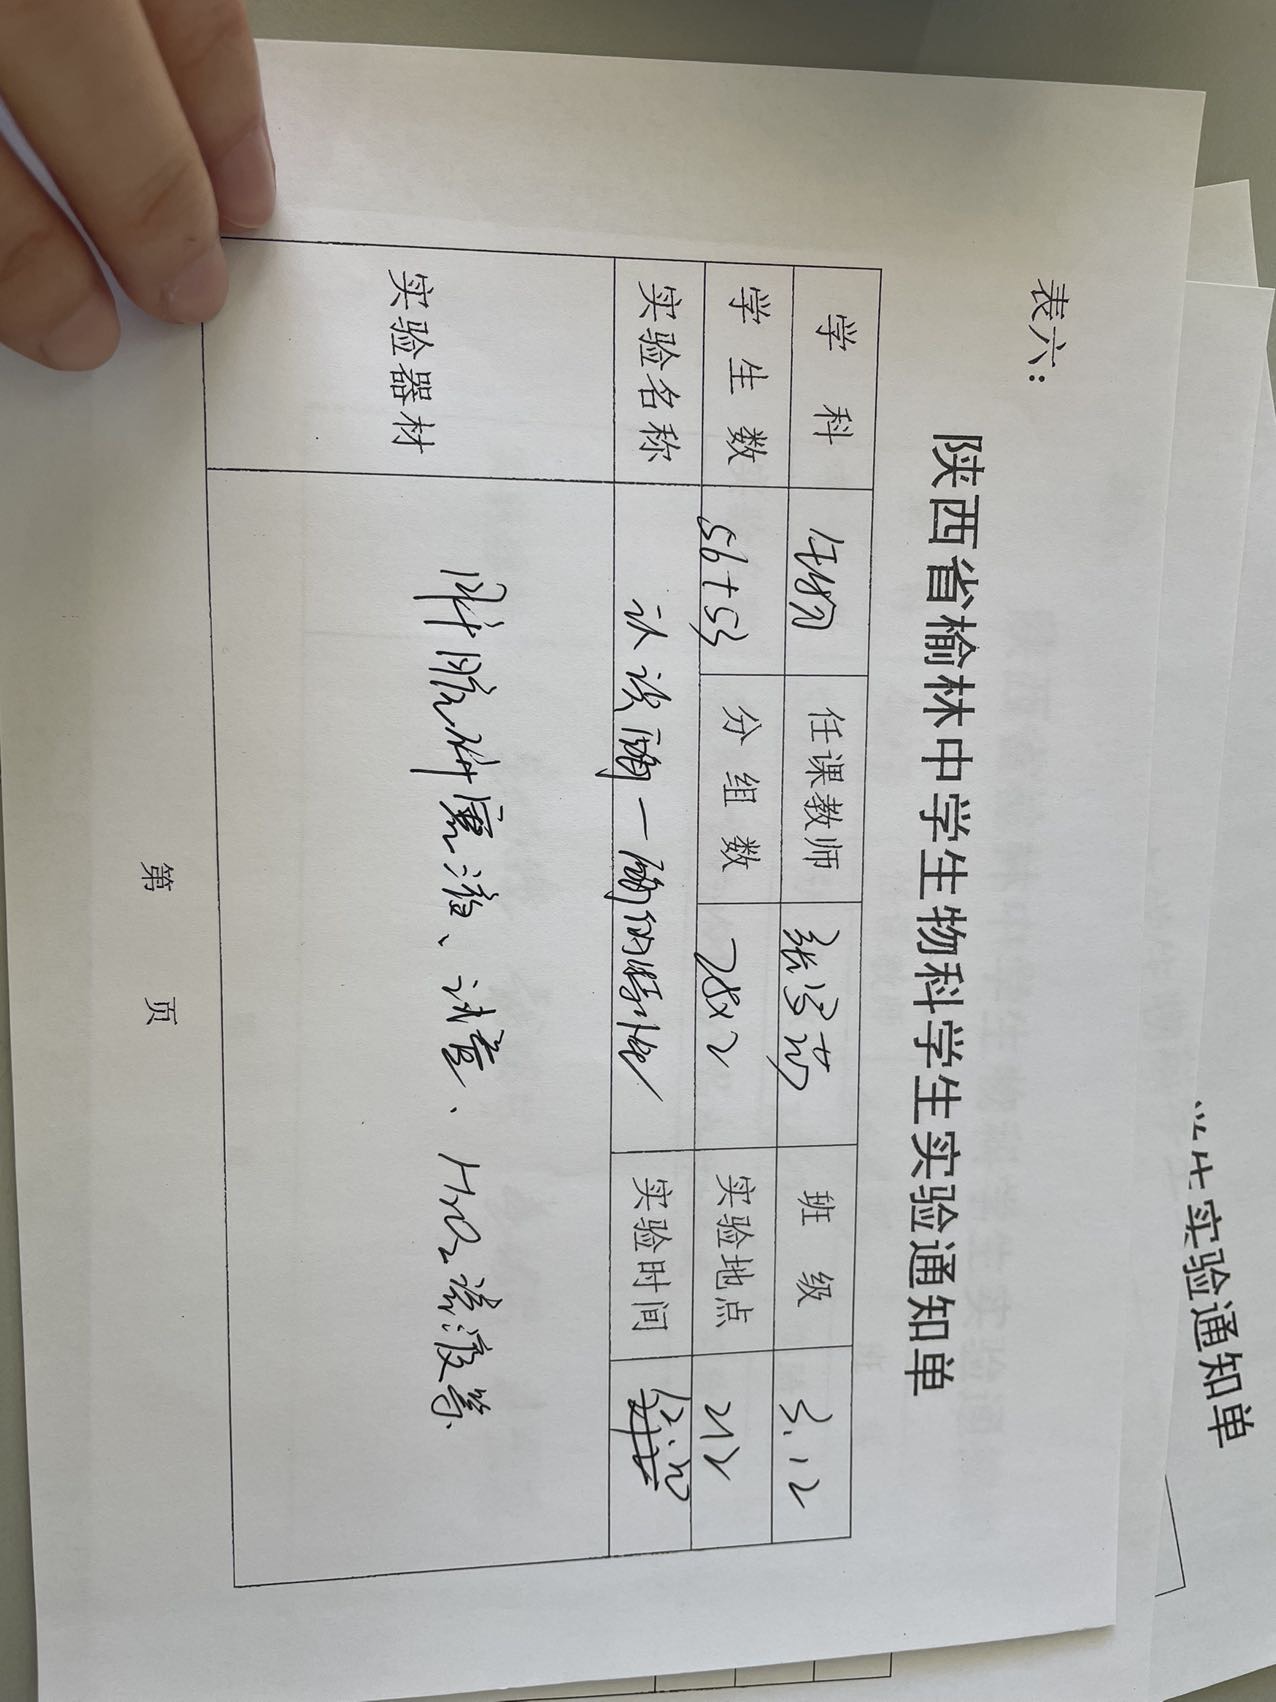 表六：
陕西省榆林中学生物科学生实验通知单
学 科 生物 任课教师 班 级 3.12
学 生 数 56+53 分 组 数 28×2 实验地点 212
实验名称 认识酶一酶的特性 实验时间
实验器材 肝脏研磨液、试管、H2O2溶液等
第 页
生实验通知单